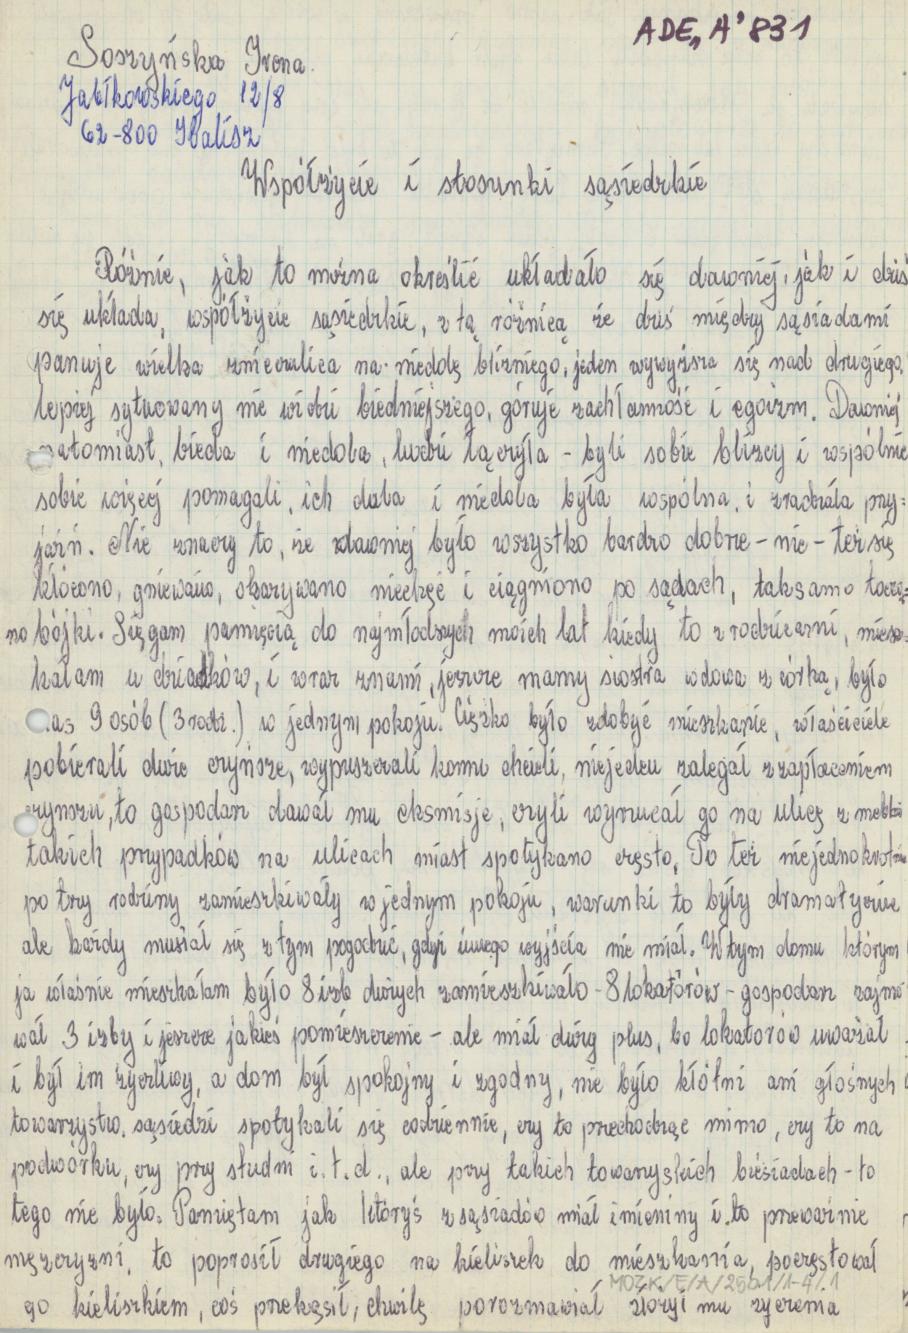 ADE, A' 831
Soszyńska Irena.
Jabłkowskiego 12/8
62-800 Kalisz
Współżycie i stosunki sąsiedzkie
Różnie, jak to można określić układało się dawniej, jak i dziś
się układa, współżycie sąsiedzkie, z tą różnicą że dziś między sąsiadami
panuje wielka znieczulica na niedolę bliźniego, jeden wywyższa się nad drugiego,
lepiej sytuowany nie widzi biedniejszego, góruje zachłanność i egoizm. Dawniej
natomiast, bieda i niedola, ludzi łączyła - byli sobie bliżcy i wspólnie
sobie więcej pomagali, ich dola i niedola była wspólna, i zradzała przy=
jaźń. Nie znaczy to, że dawniej było wszystko bardzo dobrze - nie - też się
kłócono, gniewano, okazywano niechęć i ciągniono po sądach, taksamo toczo=
no bójki. Sięgam pamięcią do najmłodszych moich lat kiedy to z rodzicami, miesz=
kałam u dziadków, i wraz znami, jeszcze mamy siostra wdowa z córką, było
nas 9 osób (3 rodz.) w jednym pokoju. Ciężko było zdobyć mieszkanie, właściciele
pobierali duże czynsze, wypuszczali komu chcieli, niejeden zalegał z zapłaceniem
czynszu, to gospodarz dawał mu eksmisje, czyli wyrzucał go na ulicę z meblami
takich przypadków na ulicach miast spotykano często, To też niejednokrotnie
po trzy rodziny zamieszkiwały w jednym pokoju, warunki to były dramatyczne
ale każdy musiał się z tym pogodzić, gdyż innego wyjścia nie miał. W tym domu którym
ja właśnie mieszkałam było 8 izb dużych zamieszkiwało - 8 lokatorów - gospodarz zajmo
wał 3 izby i jeszcze jakieś pomieszczenie - ale miał duży plus, bo lokatorów uważał
i był im życzliwy, a dom był spokojny i zgodny, nie było kłótni ani głośnych
towarzystw. sąsiedzi spotykali się codziennie, czy to przechodząc mimo, czy to na
podwórku, czy przy studni i.t.d., ale przy takich towarzyskich biesiadach - to
tego nie było. Pamiętam jak któryś z sąsiadów miał imieniny i to przeważnie
mężczyzni, to poprosił drugiego na kieliszek do mieszkania, poczęstował
go kieliszkiem, coś przekąsił, chwilę porozmawiał złożył mu życzenia
MOZK/E/A/2501/1-4/1